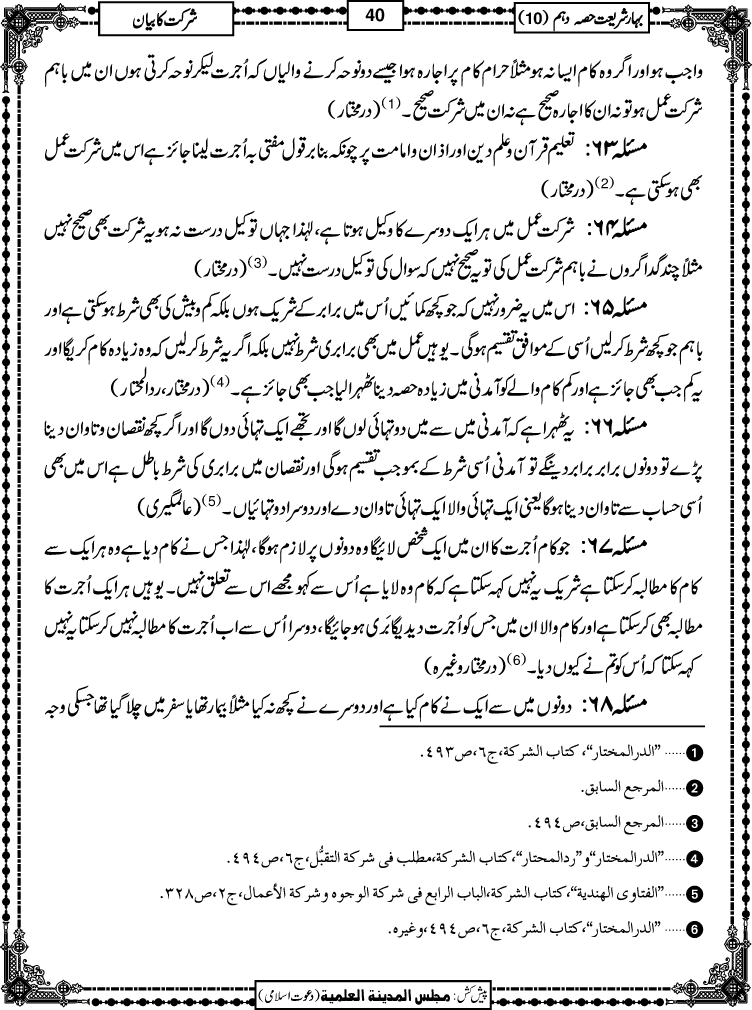 بہار شریعت حصہ دہم (10)
40
شرکت کا بیان
واجب ہوا اور اگر وہ کام ایسا نہ ہو مثلاً حرام کام پر اجارہ ہوا جیسے دو نوحہ کرنے والیاں کہ اُجرت لیکر نوحہ کرتی ہوں ان میں باہم
شرکت عمل ہو تو نہ ان کا اجارہ صحیح ہے نہ ان میں شرکت صحیح۔(1) (درمختار)
مسئلہ ۶۳: تعلیم قرآن و علم دین اور اذان و امامت پر چونکہ بنا بر قول مفتی بہ اُجرت لینا جائز ہے اس میں شرکت عمل
بھی ہوسکتی ہے۔(2) (درمختار)
مسئلہ ۶۴: شرکت عمل میں ہر ایک دوسرے کا وکیل ہوتا ہے، لہٰذا جہاں توکیل درست نہ ہو یہ شرکت بھی صحیح نہیں
مثلاً چند گداگروں نے باہم شرکت عمل کی تو یہ صحیح نہیں کہ سوال کی توکیل درست نہیں۔(3) (درمختار)
مسئلہ ۶۵: اس میں یہ ضرور نہیں کہ جو کچھ کمائیں اُس میں برابر کے شریک ہوں بلکہ کم و بیش کی بھی شرط ہوسکتی ہے اور
باہم جو کچھ شرط کرلیں اُسی کے موافق تقسیم ہوگی۔ یوہیں عمل میں بھی برابری شرط نہیں بلکہ اگر یہ شرط کرلیں کہ وہ زیادہ کام کریگا اور
یہ کم جب بھی جائز ہے اور کم کام والے کو آمدنی میں زیادہ حصہ دینا ٹھہرا لیا جب بھی جائز ہے۔(4) (درمختار، ردالمحتار)
مسئلہ ۶۶: یہ ٹھہرا ہے کہ آمدنی میں سے میں دو تہائی لوں گا اور تجھے ایک تہائی دوں گا اور اگر کچھ نقصان و تاوان دینا
پڑے تو دونوں برابر برابر دینگے تو آمدنی اُسی شرط کے بموجب تقسیم ہوگی اور نقصان میں برابری کی شرط باطل ہے اس میں بھی
اُسی حساب سے تاوان دینا ہوگا یعنی ایک تہائی والا ایک تہائی تاوان دے اور دوسرا دو تہائیاں۔(5) (عالمگیری)
مسئلہ ۶۷: جو کام اُجرت کا ان میں ایک شخص لائیگا وہ دونوں پر لازم ہوگا، لہٰذا جس نے کام دیا ہے وہ ہر ایک سے
کام کا مطالبہ کرسکتا ہے شریک یہ نہیں کہہ سکتا ہے کہ کام وہ لایا ہے اُس سے کہو مجھے اس سے تعلق نہیں۔ یوہیں ہر ایک اُجرت کا
مطالبہ بھی کرسکتا ہے اور کام والا ان میں جس کو اُجرت دیدیگا بَری ہوجائیگا، دوسرا اُس سے اب اُجرت کا مطالبہ نہیں کرسکتا یہ نہیں
کہہ سکتا کہ اُس کو تم نے کیوں دیا۔(6) (درمختار وغیرہ)
مسئلہ ۶۸: دونوں میں سے ایک نے کام کیا ہے اور دوسرے نے کچھ نہ کیا مثلاً بیمار تھا یا سفر میں چلا گیا تھا جسکی وجہ
1 ...... "الدرالمختار"، کتاب الشرکة، ج٦، ص٤٩٣.
2 ......المرجع السابق.
3 ......المرجع السابق، ص٤٩٤.
4 ......"الدرالمختار" و "ردالمحتار"، کتاب الشرکة، مطلب فی شرکة التقبُّل، ج٦، ص٤٩٤.
5 ......"الفتاوی الهندیة"، کتاب الشرکة، الباب الرابع فی شرکة الوجوه وشرکة الأعمال، ج٢، ص٣٢٨.
6 ...... "الدرالمختار"، کتاب الشرکة، ج٦، ص٤٩٤، وغیره.
پیش کش: مجلس المدینة العلمیة (دعوت اسلامی)